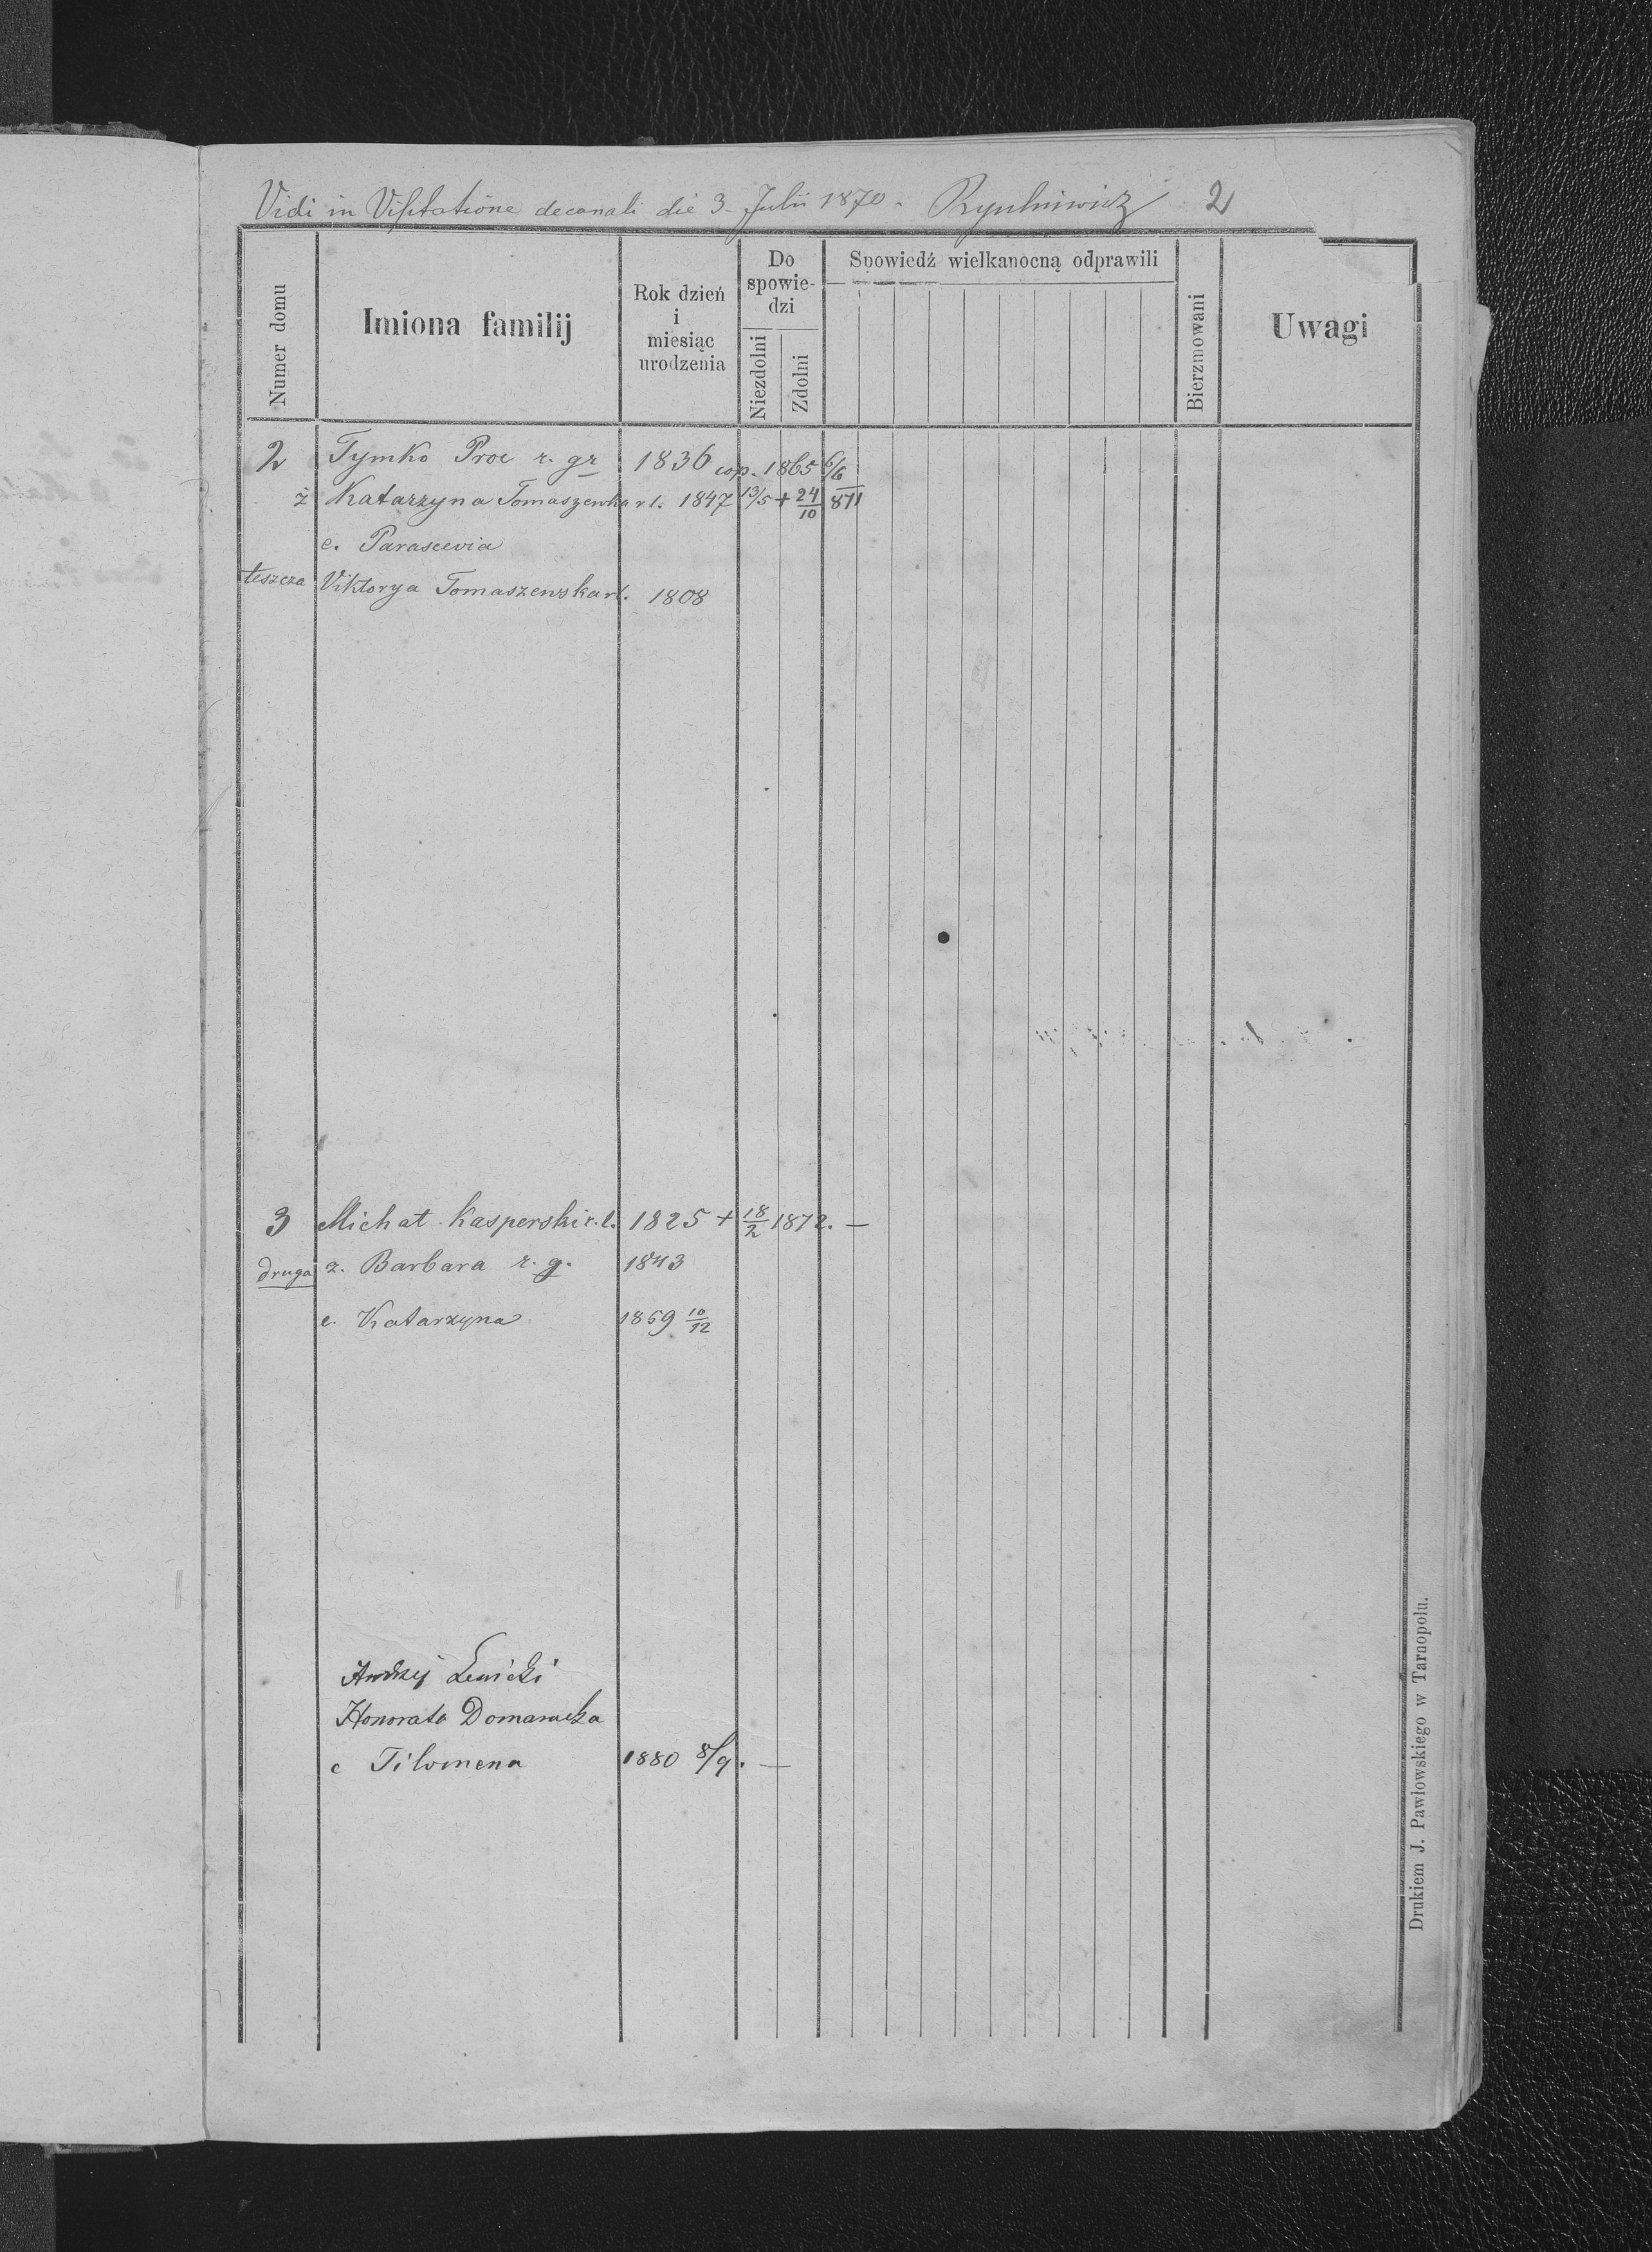 Vidi in Visitatione decanali die 3 Julii 1870. 2
Numer domu
Imiona familij
Rok dzień
i
miesiąc
urodzenia
Do
spowie-
dzi
Niezdolni
Zdolni
Spowiedź wielkanocną odprawili
Bierzmowani
Uwagi
2 Tymko Proc r. gr 1836 cop. 1865 6/6
ż Katarzyna Tomaszewska r l. 1847 13/5 + 24/10 871
c. Parascevia
teszcza Viktorya Tomaszewska rl. 1808
3 Michał Kasperski r. l. 1825 + 18/2 1872. —
druga ż. Barbara r. g. 1843
c. Katarzyna 1859 10/12
Andrzej Lewicki
Honorata
c Filomena 1880 8/9. —
Drukiem J. Pawłowskiego w Tarnopolu.